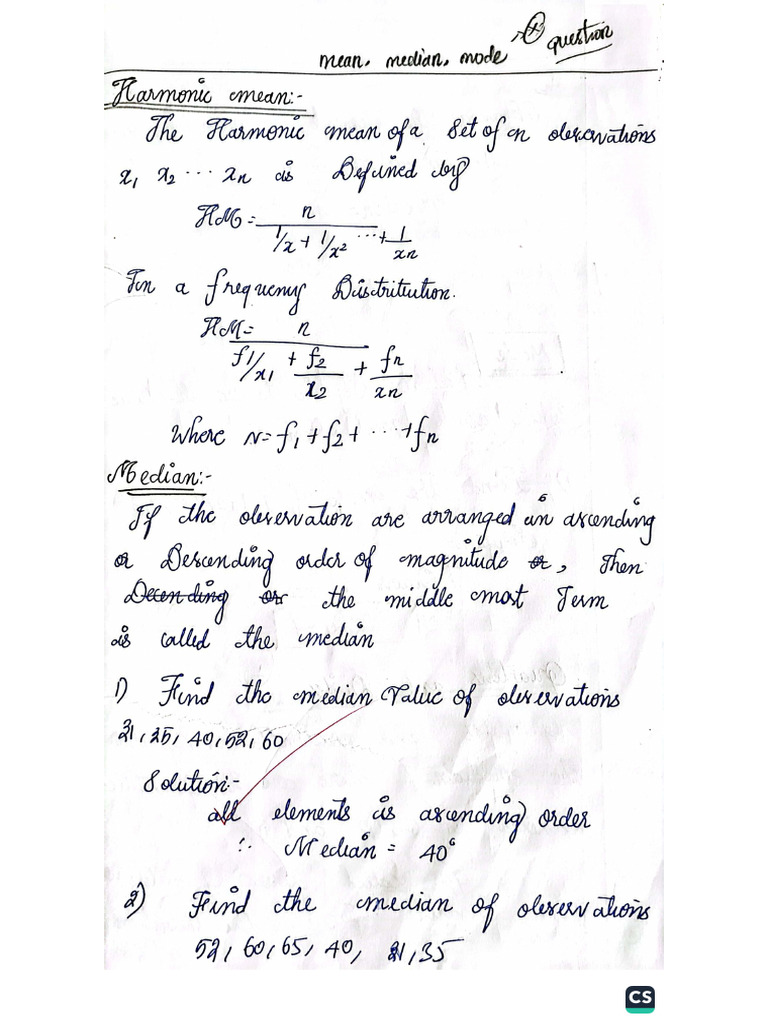 question
mean, median, mode
Harmonic mean:-
The Harmonic mean of a set of n observations
x₁ x₂ ... xn is Defined by
HM = n
1/x + 1/x² ... + 1/xn
In a frequency Distribution.
HM = n
f1/x1 + f2/x2 + fn/xn
Where N = f₁ + f₂ + ... + fn
Median:-
If the observation are arranged in ascending
or Descending order of magnitude or, then
Decending or the middle most Term
is called the median
1) Find the median value of observations
21, 35, 40, 52, 60
Solution:-
all elements is ascending order
∴ Median = 40
2) Find the median of observations
52, 60, 65, 40, 21, 35
CS